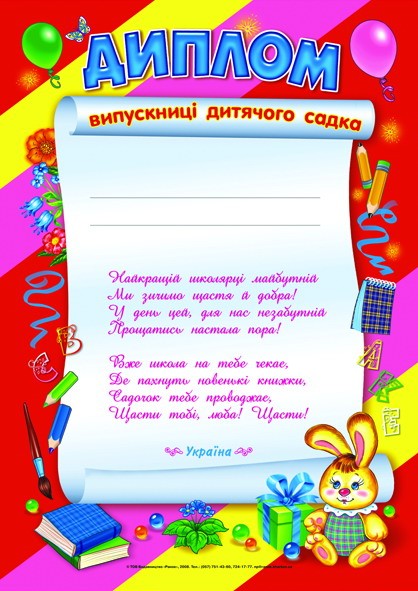 ДИПЛОМ
ВИПУСКНИЦІ ДИТЯЧОГО САДКА
Найкращій школярці майбутній
Ми зичимо щастя й добра!
У день цей, для нас незабутній
Прощатись настала пора!
Вже школа на тебе чекає,
Де пахнуть новенькі книжки,
Садочок тебе проводжає,
Щасти тобі, люба! Щасти!
Україна
В
З
А
К
Б